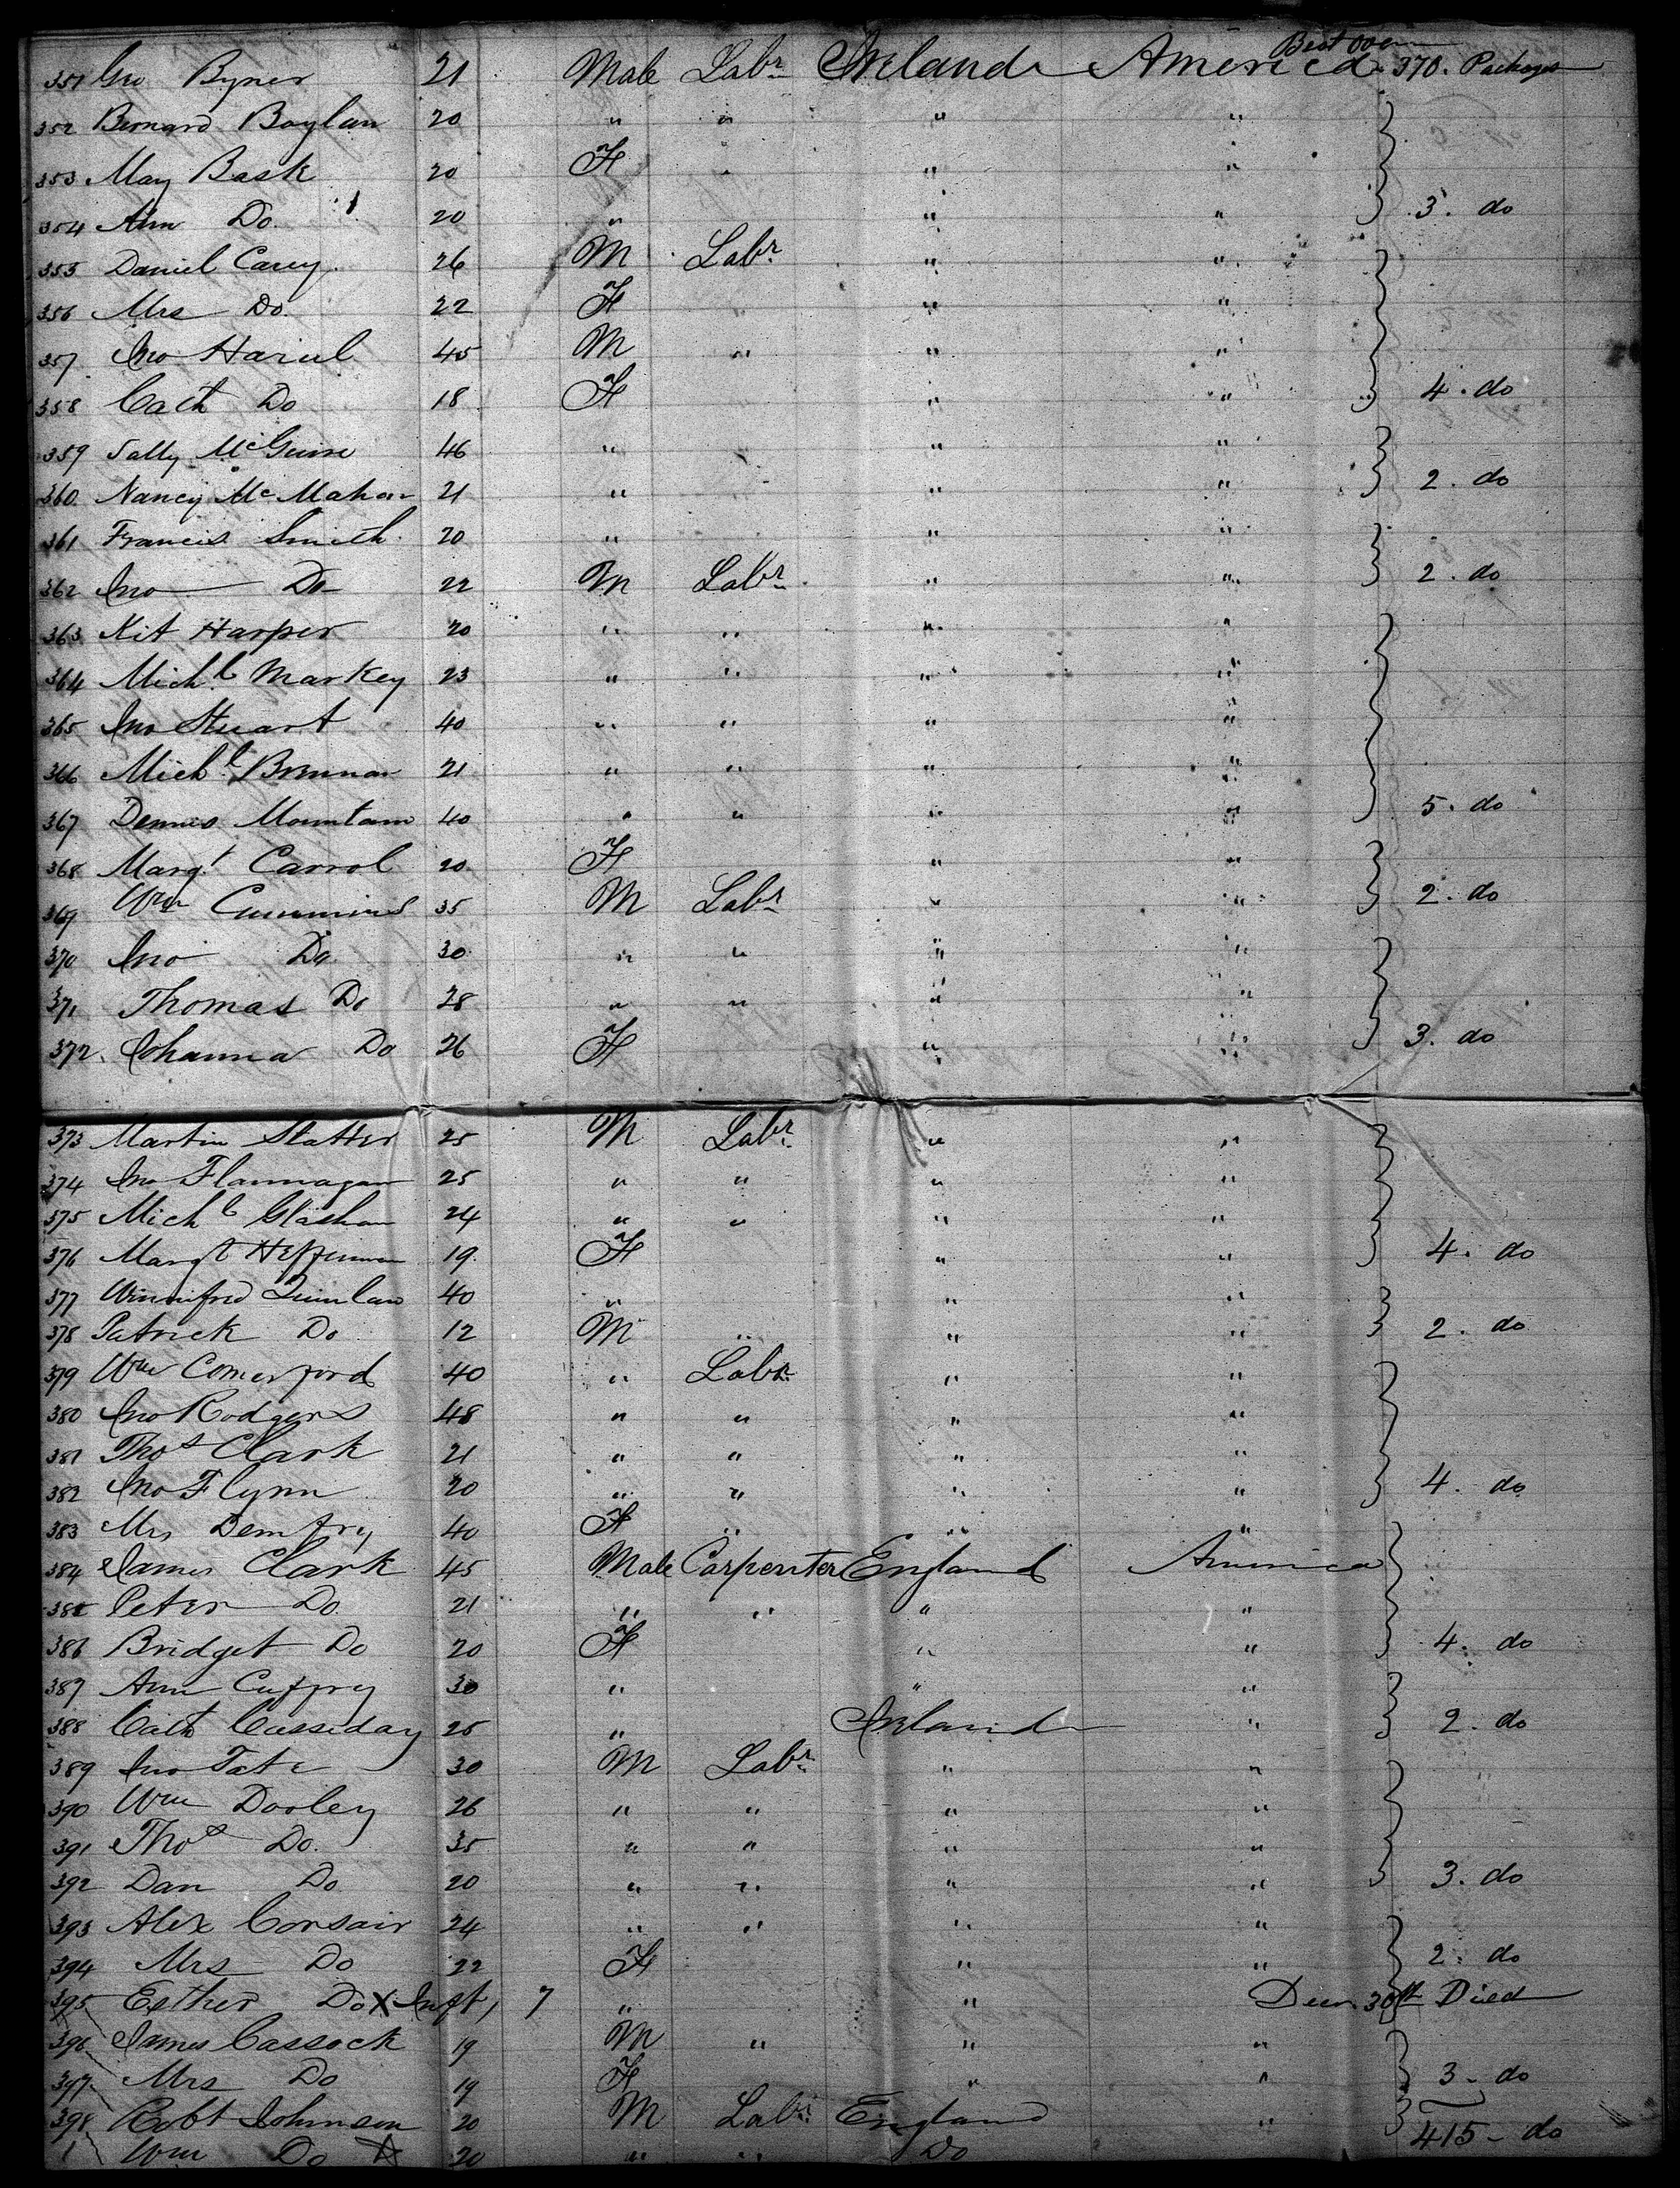 Brot over
351 Geo Byner 21 Male Labr Ireland America 370. Packages
352 Bernard Boylan 20 " " " "
353 May Bask 20 F " " "
354 Ann Do. 20 " " " 3. do
355 Daniel Carey. 26 M Labr " "
356 Mrs Do. 22 F " "
357 Jno Hariel 45 M " " "
358 Cath Do 18 F " " 4. do
359 Sally McGuire 46 " " "
360 Nancy McMahon 21 " " " 2. do
361 Francis Smith 20 " " "
362 Jno Do 22 M Labr " " 2. do
363 Kit Harper 20 " " " "
364 Michl Markey 23 " " " "
365 Jno Stuart 40 " " " "
366 Michl Brennan 21 " " " "
367 Dennis Mountain 40 " " " " 5. do
368 Margt Carrol 20 F " "
369 Wm Cummins 35 M Labr " " 2. do
370 Jno Do 30 " " " "
371 Thomas Do 28 " " " "
372. Johanna Do 26 F " " 3. do
373 Martin Slatter 25 M Labr " "
374 Jno Flannagan 25 " " " "
375 Michl Glashan 24 " " " "
376 Margt Heffernan 19. F " " 4. do
377 Winnifred Quinlan 40 " " "
378 Patrick Do 12 M " " " 2. do
379 Wm Comerford 40 " Labr " "
380 Jno Rodgers 48 " " " "
381 Thos Clark 21 " " " "
382 Jno Flynn 20 " " " " 4. do
383 Mrs Demfry 40 F " " "
384 James Clark 45 Male Carpenter England America
385 Peter Do. 21 " " " "
386 Bridget Do 20 F " " 4. do
387 Ann Cuffry 30 " " "
388 Cath Cassiday 25 " Ireland " 2. do
389 Jno Tate 30 M Labr " "
390 Wm Dooley 26 " " " "
391 Thos Do. 35 " " " "
392 Dan Do 20 " " " " 3. do
393 Alex Corsair 24 " " " "
394 Mrs Do 22 F " " 2. do
395 Esther Do X Inft, 7 " " Decr. 30th Died
396 James Cassock 19 M " " "
397 Mrs Do 19 F " " 3 - do
398 Robt Johnson 20 M Labr England "
1 Wm Do 20 " " Do 415 - do